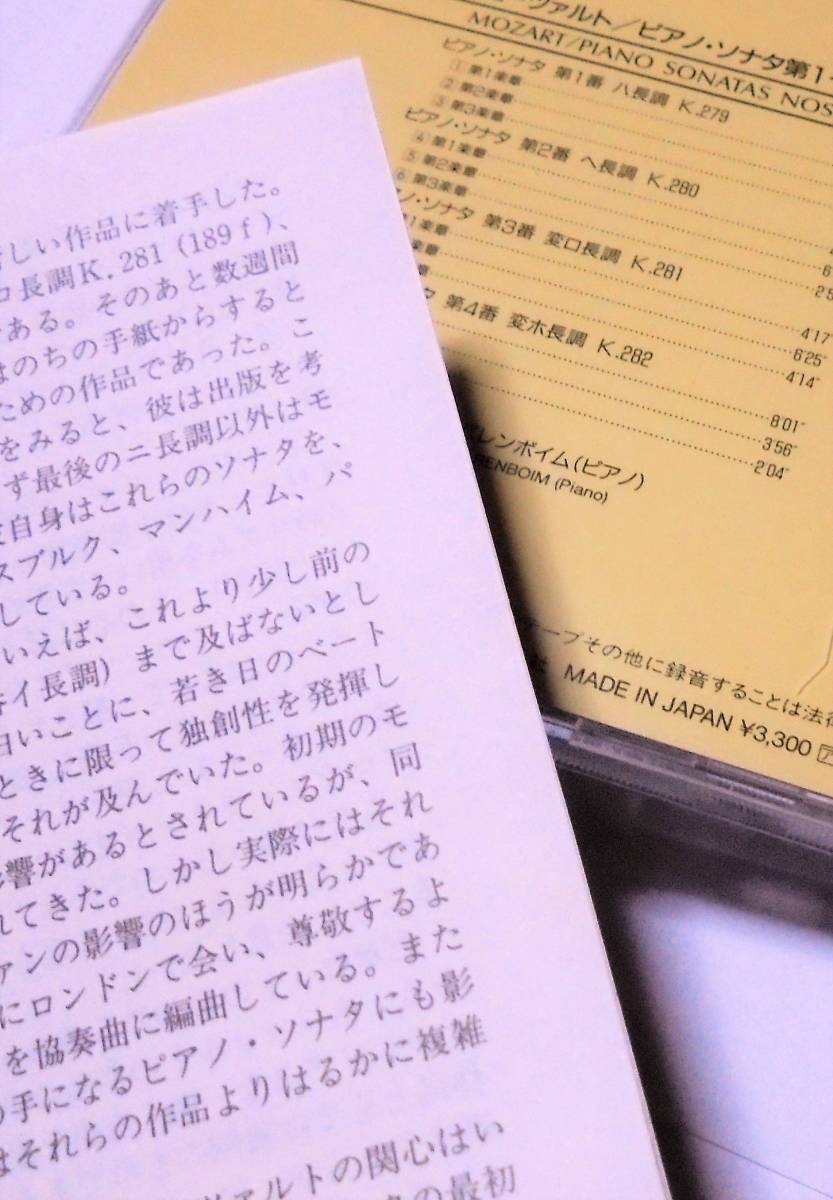 しい作品に着手した。
長調K.281 (189f)、
ある。そのあと数週間
はのちの手紙からすると
ための作品であった。こ
をみると、彼は出版を考
ず最後のニ長調以外はモ
自身はこれらのソナタを、
スブルク、マンハイム、パ
している。
いえば、これより少し前の
イ長調) まで及ばないとし
白いことに、若き日のベート
ときに限って独創性を発揮し
それが及んでいた。初期のモ
影響があるとされているが、同
れてきた。しかし実際にはそれ
ァンの影響のほうが明らかであ
にロンドンで会い、尊敬するよ
を協奏曲に編曲している。また
の手になるピアノ・ソナタにも影
はそれらの作品よりはるかに複雑
ァルトの関心はい
の最初
ツァルト/ピアノ・ソナタ第1
MOZART/PIANO SONATAS NOS
ピアノ・ソナタ 第1番 ハ長調 K.279
① 第1楽章
② 第2楽章
③ 第3楽章
ピアノ・ソナタ 第2番 ヘ長調 K.280
④ 第1楽章
⑤ 第2楽章
⑥ 第3楽章
ノ・ソナタ 第3番 変ロ長調 K.281
第1楽章
楽章
4'17"
6'25"
4'14"
タ 第4番 変ホ長調 K.282
8'01"
3'56"
2'04"
レンボイム(ピアノ)
RENBOIM (Piano)
テープその他に録音することは法律
MADE IN JAPAN ¥3,300